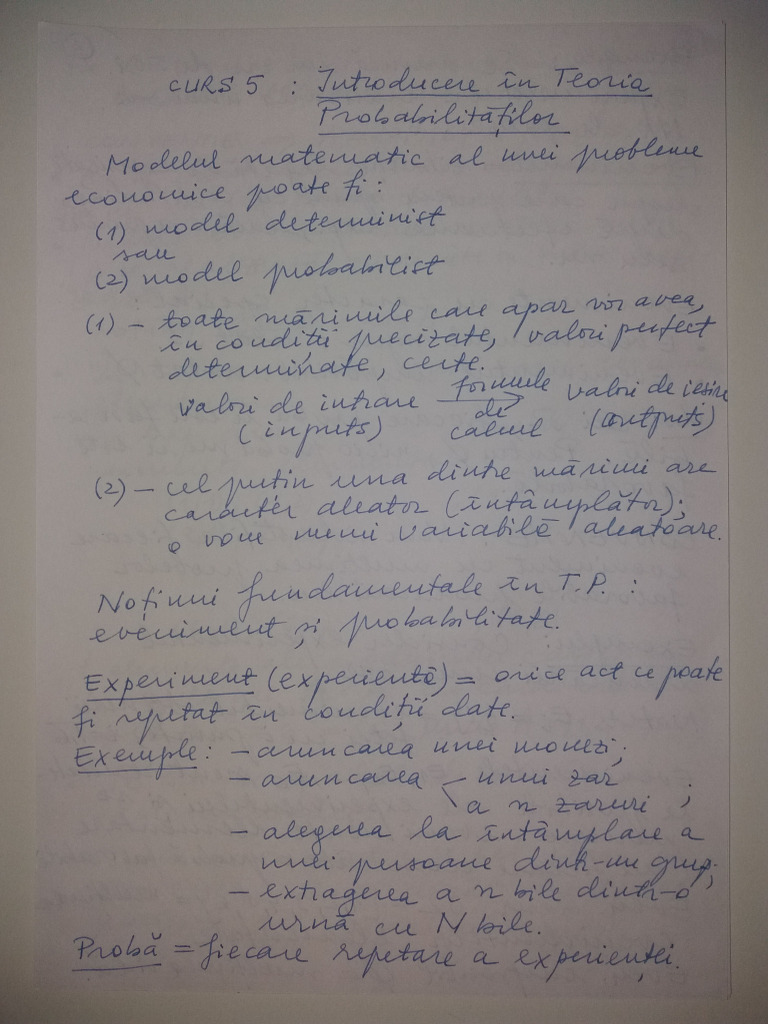 CURS 5 : Introducere în Teoria
Probabilităților
Modelul matematic al unei probleme
economice poate fi :
(1) model determinist
sau
(2) model probabilist
(1) – toate mărimile care apar vor avea,
în condiții precizate, valori perfect
determinate, certe.
valori de intrare formule de calcul → valori de ieșire
(inputs) (outputs)
(2) – cel puțin una dintre mărimi are
caracter aleator (întâmplător);
o vom numi variabilă aleatoare.
Noțiuni fundamentale în T.P. :
eveniment și probabilitate.
Experiment (experiență) = orice act ce poate
fi repetat în condiții date.
Exemple : – aruncarea unei monezi;
– aruncarea – unui zar
a n zaruri ;
– alegerea la întâmplare a
unei persoane dintr-un grup;
– extragerea a n bile dintr-o
urnă cu N bile.
Probă = fiecare repetare a experienței.